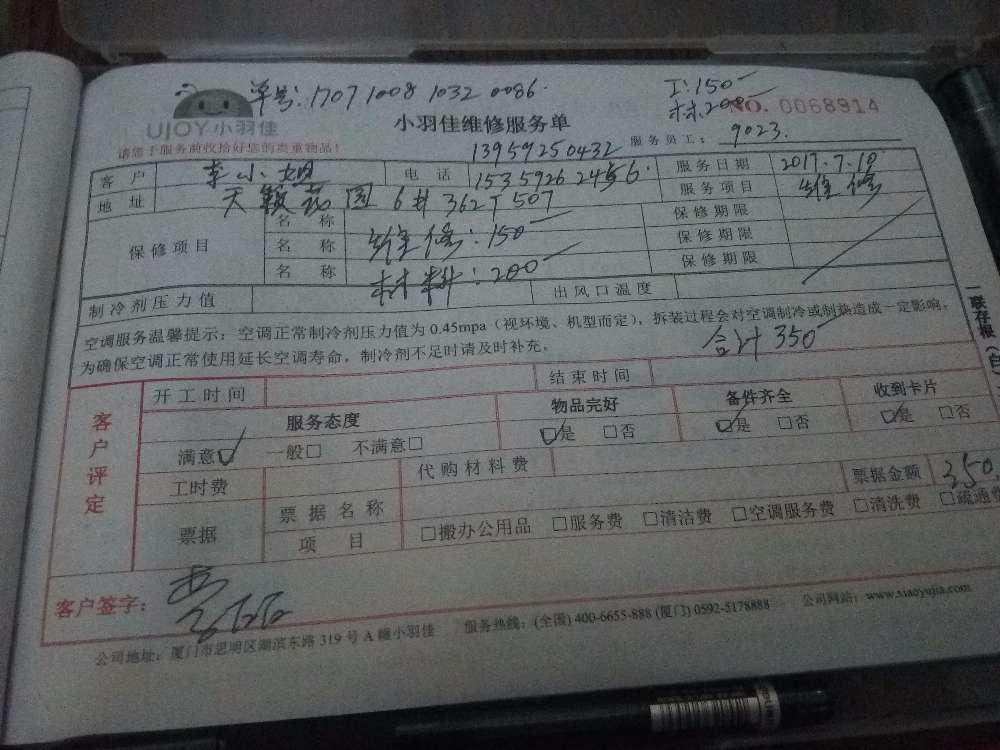 单号:1707 1008 1032 0086.
工:150
材:200
NO. 0068914
UJOY小羽佳
小羽佳维修服务单
请您于服务前收拾好您的贵重物品!
13959250432
服务员工: 9023.
客户 李小姐 电话 15359262456. 服务日期 2017.7.10
地址 天鞍花园6# 362T 507 服务项目 维修
保修项目 名称 保修期限
名称 维修:150 保修期限
名称 材料:200 保修期限
制冷剂压力值 出风口温度
空调服务温馨提示:空调正常制冷剂压力值为0.45mpa(视环境、机型而定),拆装过程会对空调制冷或制热造成一定影响,
为确保空调正常使用延长空调寿命,制冷剂不足时请及时补充。
合计350
一联存根(白)
客户评定
开工时间 结束时间
服务态度 物品完好 备件齐全 收到卡片
满意☑ 一般□ 不满意□ ☑是 □否 ☑是 □否 ☑是 □否
工时费 代购材料费 票据金额 350
票据 票据名称
项目 □搬办公用品 □服务费 □清洁费 □空调服务费 □清洗费 □疏通费
客户签字:
公司地址:厦门市思明区湖滨东路319号A幢小羽佳 服务热线:(全国)400-6655-888(厦门)0592-5178888 公司网站:www.xiaoyujia.com